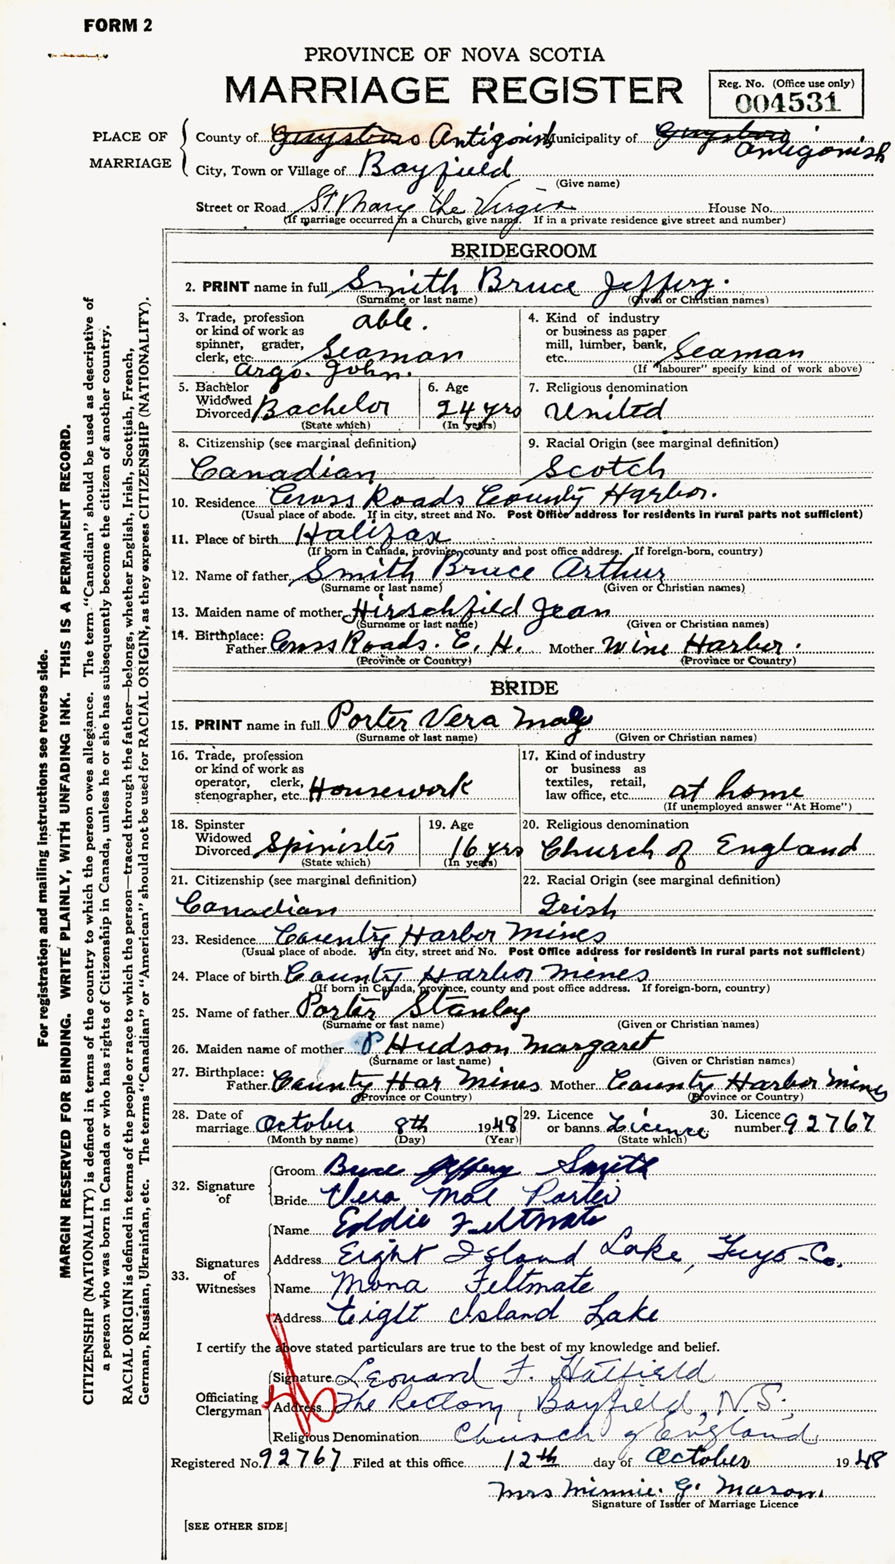 FORM 2
PROVINCE OF NOVA SCOTIA
MARRIAGE REGISTER
Reg. No. (Office use only)
004531
PLACE OF MARRIAGE
County of Guysboro Antigonish Municipality of Guysboro Antigonish
City, Town or Village of Bayfield
(Give name)
Street or Road St Mary the Virgin House No.
(If marriage occurred in a Church, give name. If in a private residence give street and number)
BRIDEGROOM
2. PRINT name in full Smith Bruce Jeffery.
(Surname or last name) (Given or Christian names)
3. Trade, profession or kind of work as spinner, grader, clerk, etc. able. Seaman Argo. John.
4. Kind of industry or business as paper mill, lumber, bank, etc. Seaman
(If "labourer" specify kind of work above)
5. Bachelor Widowed Divorced Bachelor
(State which)
6. Age 24 yrs
(In years)
7. Religious denomination United
8. Citizenship (see marginal definition) Canadian
9. Racial Origin (see marginal definition) Scotch
10. Residence Cross Roads County Harbor.
(Usual place of abode. If in city, street and No. Post Office address for residents in rural parts not sufficient)
11. Place of birth Halifax
(If born in Canada, province, county and post office address. If foreign-born, country)
12. Name of father Smith Bruce Arthur
(Surname or last name) (Given or Christian names)
13. Maiden name of mother Hirschfield Jean
(Surname or last name) (Given or Christian names)
14. Birthplace: Father Cross Roads. C. H. Mother Wine Harbor.
(Province or Country) (Province or Country)
BRIDE
15. PRINT name in full Porter Vera May
(Surname or last name) (Given or Christian names)
16. Trade, profession or kind of work as operator, clerk, stenographer, etc. Housework
17. Kind of industry or business as textiles, retail, law office, etc. at home
(If unemployed answer "At Home")
18. Spinster Widowed Divorced Spinister
(State which)
19. Age 16 yrs
(In years)
20. Religious denomination Church of England
21. Citizenship (see marginal definition) Canadian
22. Racial Origin (see marginal definition) Irish
23. Residence County Harbor Mines
(Usual place of abode. If in city, street and No. Post Office address for residents in rural parts not sufficient)
24. Place of birth County Harbor Mines
(If born in Canada, province, county and post office address. If foreign-born, country)
25. Name of father Porter Stanley
(Surname or last name) (Given or Christian names)
26. Maiden name of mother P Hudson Margaret
(Surname or last name) (Given or Christian names)
27. Birthplace: Father County Har Mines Mother County Harbor Mines
(Province or Country) (Province or Country)
28. Date of marriage October 8th 1948
(Month by name) (Day) (Year)
29. Licence or banns Licence
(State which)
30. Licence number 92767
32. Signature of
Groom Bruce Jeffery Smith
Bride Vera Mae Porter
33. Signatures of Witnesses
Name Eddie Feltmate
Address Eight Island Lake, Guys-Co.
Name Mona Feltmate
Address Eight Island Lake
I certify the above stated particulars are true to the best of my knowledge and belief.
Officiating Clergyman
Signature Leonard F. Hatfield
Address The Rectory, Bayfield, N.S.
Religious Denomination Church of England
Registered No. 92767 Filed at this office 12th day of October 1948
Mrs Minnie. G. Mason.
Signature of Issuer of Marriage Licence
[SEE OTHER SIDE]
For registration and mailing instructions see reverse side.
MARGIN RESERVED FOR BINDING. WRITE PLAINLY, WITH UNFADING INK. THIS IS A PERMANENT RECORD.
CITIZENSHIP (NATIONALITY) is defined in terms of the country to which the person owes allegiance. The term "Canadian" should be used as descriptive of
a person who was born in Canada or who has rights of Citizenship in Canada, unless he or she has subsequently become the citizen of another country.
RACIAL ORIGIN is defined in terms of the people or race to which the person—traced through the father—belongs, whether English, Irish, Scottish, French,
German, Russian, Ukrainian, etc. The terms "Canadian" or "American" should not be used for RACIAL ORIGIN, as they express CITIZENSHIP (NATIONALITY).